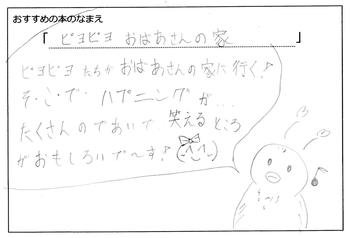 おすすめの本のなまえ
「ピヨピヨ おばあさんの家」
ピヨピヨたちがおばあさんの家に行く♪
そ・こ・で・ハプニングが…
たくさんのであいで、笑えるところ
がおもしろいで〜す♪